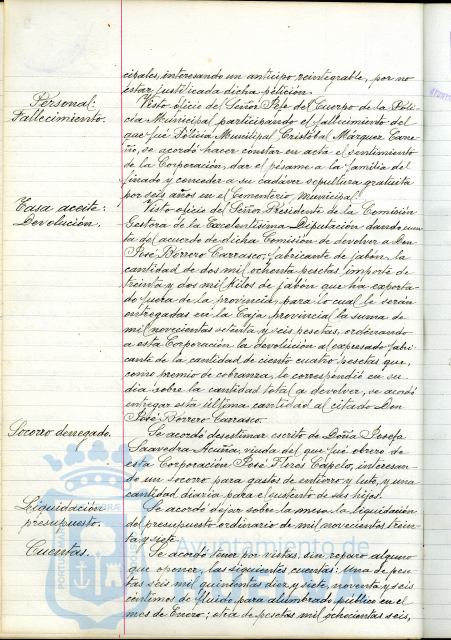 cipales, interesando un anticipo reintegrable, por no
estar justificada dicha petición.
Personal:
Fallecimiento.
Visto oficio del Señor Jefe del Cuerpo de la Poli-
cia Municipal participando el fallecimiento del
que fué Policia Municipal Cristóbal Márquez Cane-
ño, se acordó hacer constar en acta el sentimiento
de la Corporación, dar el pésame a la familia del
finado y conceder a su cadáver sepultura gratuita
por seis años en el Cementerio Municipal.
Tasa aceite:
Devolución.
Visto oficio del Señor Presidente de la Comisión
Gestora de la Excelentísima Diputación dando cuen-
ta del acuerdo de dicha Comisión de devolver a Don
José Borrero Carrasco, fabricante de jabón, la
cantidad de dos mil ochenta pesetas importe de
treinta y dos mil kilos de jabón que ha exporta-
do fuera de la provincia, para lo cual le serán
entregadas en la Caja provincial la suma de
mil novecientas setenta y seis pesetas, ordenando
a esta Corporación la devolución al expresado fabri-
cante de la cantidad de ciento cuatro pesetas que,
como premio de cobranza, le correspondió en su
dia sobre la cantidad total a devolver, se acordó
entregar esta última cantidad al citado Don
José Borrero Carrasco.
Socorro denegado.
Se acordó desestimar escrito de Doña Josefa
Saavedra Acuña, viuda del que fué obrero de
esta Corporación José Flores Capelo, interesan-
do un socorro para gastos de entierro y luto, y una
cantidad diaria para el sustento de sus hijos.
Liquidación
presupuesto.
Se acordó dejar sobre la mesa la liquidación
del presupuesto ordinario de mil novecientos trein-
ta y siete.
Cuentas.
Se acordó tener por vistas, sin reparo alguno
que oponer, las siguientes cuentas: Una de pese-
tas seis mil quinientas diez y siete, noventa y seis
céntimos de fluido para alumbrado público en el
mes de Enero; otra de pesetas mil ochocientas seis,
Ayuntamiento de